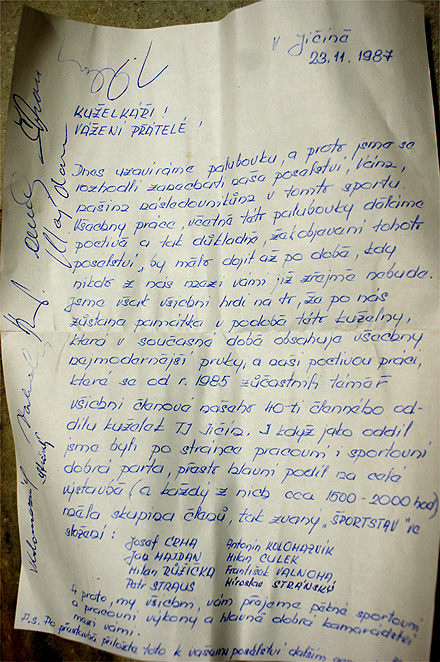 V Jičíně
23.11. 1987
KUŽELKÁŘI!
VÁŽENÍ PŘÁTELÉ!
Dnes uzavíráme palubovku, a proto jsme se
rozhodli zanechati naše poselství, Vám,
našim následovníkům v tomto sportu.
Všechny práce, včetně této palubovky děláme
poctivě a tak důkladně, že objevení tohoto
poselství, by mělo dojít až po době, kdy
nikdo z nás mezi vámi již zřejmě nebude.
Jsme však všichni hrdi na to, že po nás
zůstane památka v podobě této kuželny,
která v současné době obsahuje všechny
nejmodernější prvky, a naši poctivou práci,
které se od r. 1985 zúčastnili téměř
všichni členové našeho 40-ti členného od-
dílu kuželek TJ Jičín. I když jako oddíl
jsme byli po stránce pracovní i sportovní
dobrá parta, přesto hlavní podíl na celé
výstavbě (a každý z nich cca 1500-2000 hod)
měla skupina členů, tak zvaný "ŠPORTSTAV" ve
složení:
Josef CRHA Antonín KOLOMAZNÍK
Jan HAJDAN Milan CULEK
Milan RŮŽIČKA František VALNOHA
Petr STRAUS Miroslav STRÁNSKÝ
A proto, my všichni, vám přejeme pěkné sportovní
a pracovní výkony a hlavně dobré kamarádství
mezi vámi.
P.S. Po přestavbě přiložte toto k vašemu poselství dalším